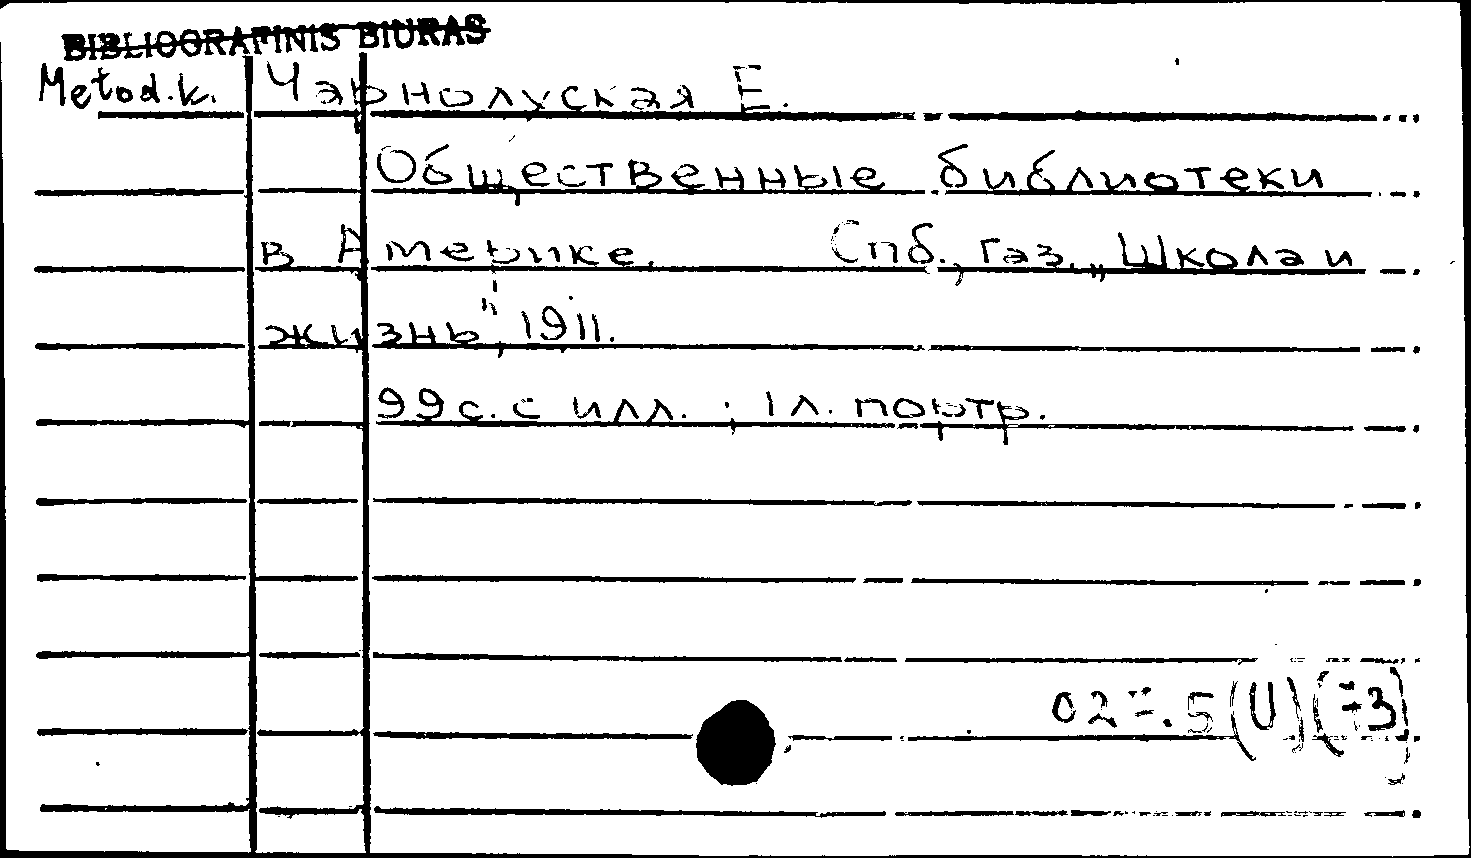 BIBLIOGRAFINIS BIURAS
Metod.k. Чарнолуская Е.
Общественные библиотеки
в Америке. Спб., газ. „Школа и
жизнь", 1911.
99с. с илл. ; 1л. портр.
027.5(U)(73)